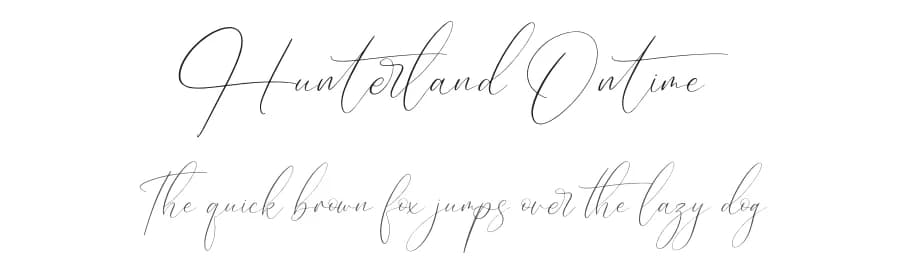 Hunterland Ontime
The quick brown fox jumps over the lazy dog